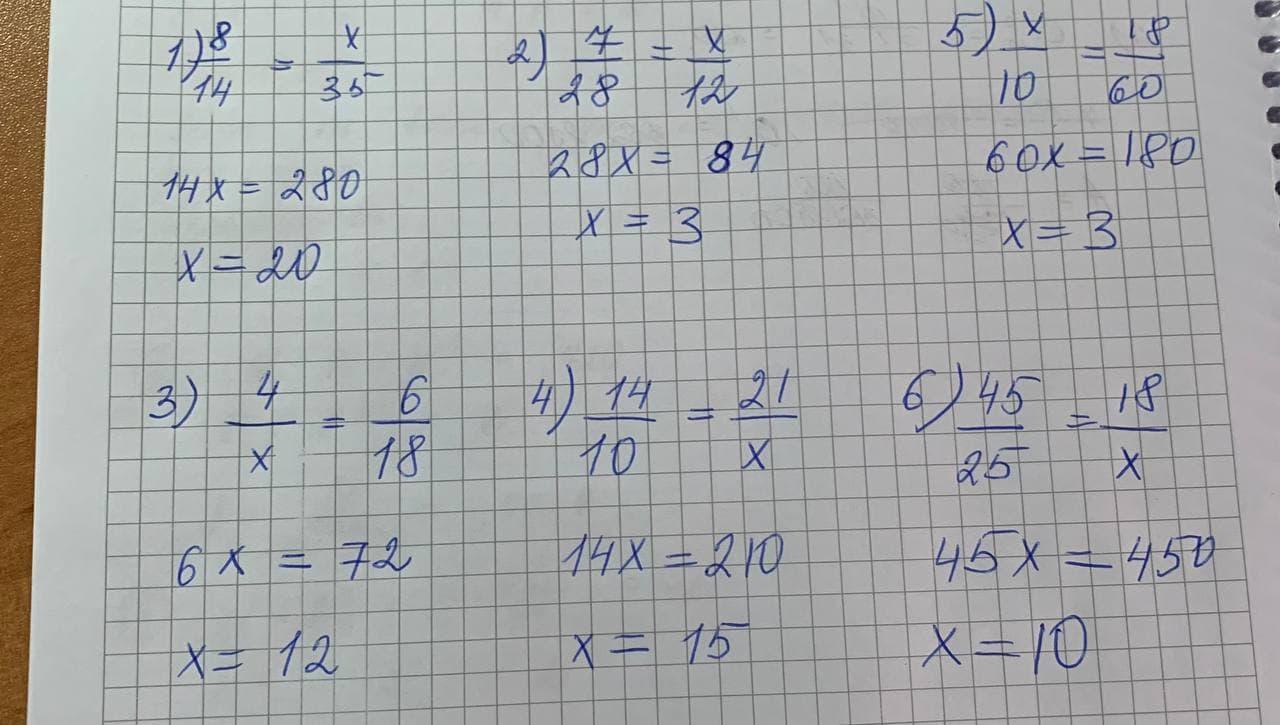 1) 8/14 = x/35
14x = 280
x = 20
2) 7/28 = x/12
28x = 84
x = 3
5) x/10 = 18/60
60x = 180
x = 3
3) 4/x = 6/18
6x = 72
x = 12
4) 14/10 = 21/x
14x = 210
x = 15
6) 45/25 = 18/x
45x = 450
x = 10